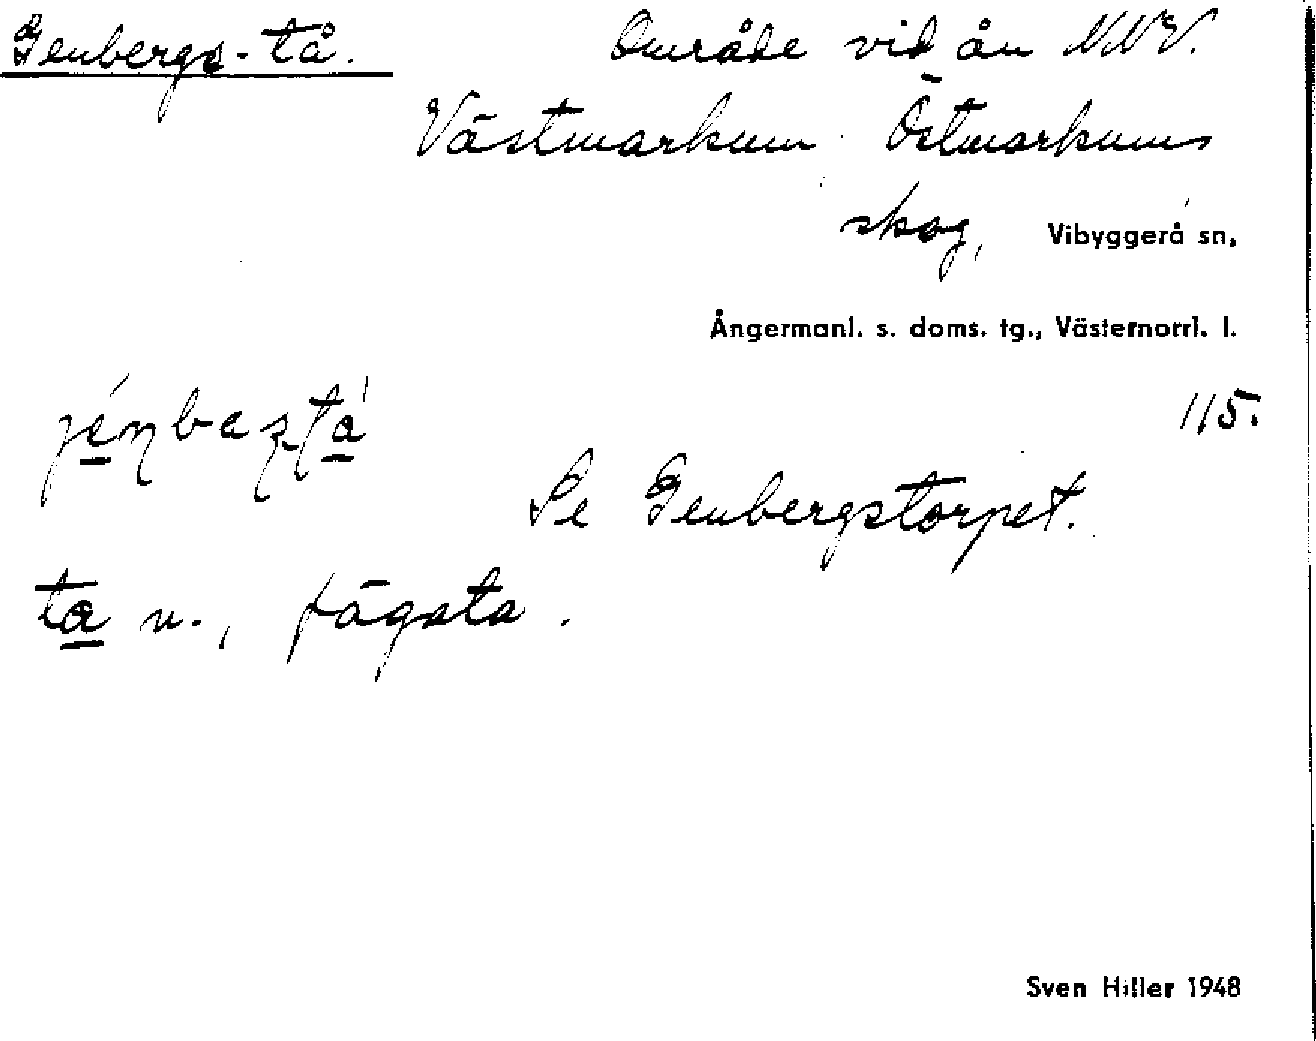 Genbergs-tå. Område vid ån NNV.
Västmarkum Östmarkums
skog, Vibyggerå sn,
Ångermanl. s. doms. tg., Västernorrl. l.
115.
Se Genbergstorpet.
ta n., fägata.
Sven Hiller 1948